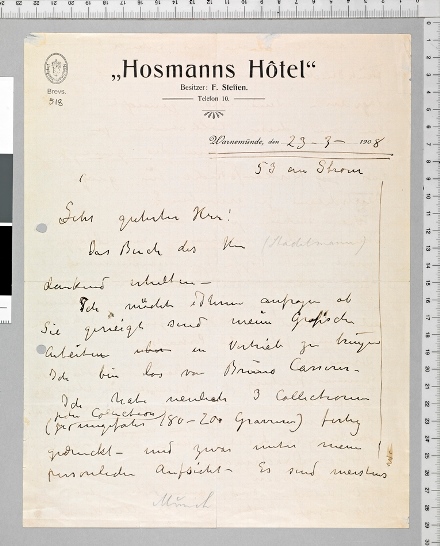 „Hosmanns Hôtel“
Besitzer: F. Steffen.
Telefon 10.
Brevs.
518
Warnemünde, den 23-3-1908
53 am Strom
Sehr geehrter Herr!
Das Buch des Hrn
dankend erhalten –
Ich möchte anfragen ob
Sie geneigt sind meine Grafischen
Arbeiten in Vertrieb zu bringen
Ich bin los von Bruno Cassirer –
Ich habe neulich 3 Collectionen
(jede Collection
ungefähr 180–200 Gravuren) fertig
gedruckt – und zwar unter meine
persönliche Aufsicht – Es sind meistens
Munch